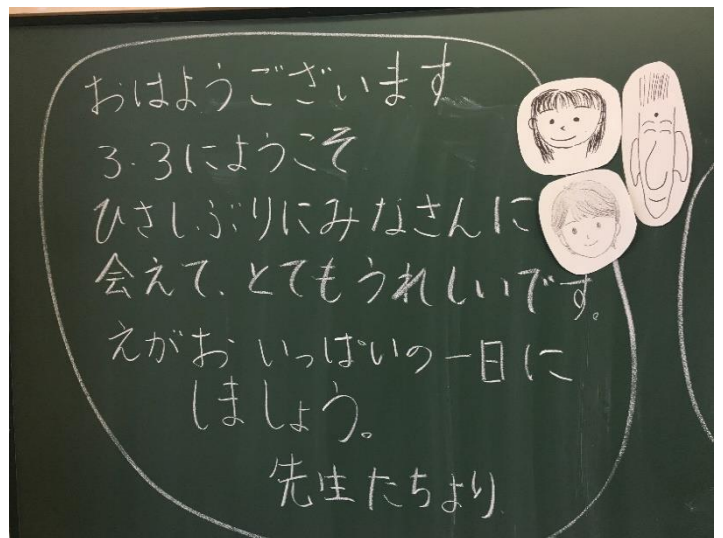 おはようございます
3.3にようこそ
ひさしぶりにみなさんに
会えて、とてもうれしいです。
えがおいっぱいの一日に
しましょう。
先生たちより